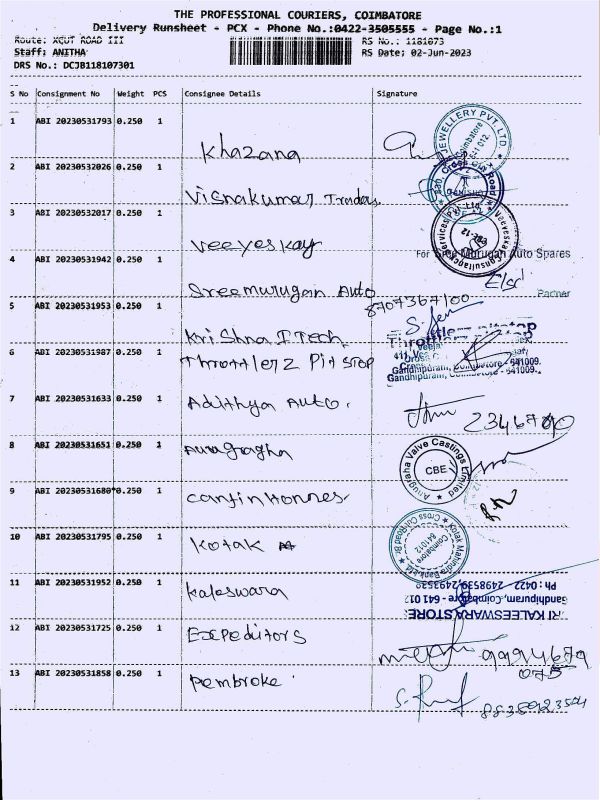 THE PROFESSIONAL COURIERS, COIMBATORE
Delivery Runsheet - PCX - Phone No.:0422-3505555 - Page No.:1
Route: XCUT ROAD III RS No.: 1181073
Staff: ANITHA RS Date: 02-Jun-2023
DRS No.: DCJB118107301
S No Consignment No Weight PCS Consignee Details Signature
1 ABI 20230531793 0.250 1 Khazana
JEWELLERY PVT. LTD.
Coimbatore
641 012.
2 ABI 20230532026 0.250 1 Visnakumar Traders
Cross Cut Road
3 ABI 20230532017 0.250 1 Veeyeskay
CBE-12
4 ABI 20230531942 0.250 1 Sreemurugan Auto
For Sree Murugan Auto Spares
Partner
8707367100
5 ABI 20230531953 0.250 1 Krishna I Tech
6 ABI 20230531987 0.250 1 Throttlerz Pit stop
Gandhipuram, Coimbatore - 641009.
7 ABI 20230531633 0.250 1 Adithya Auto.
8 ABI 20230531651 0.250 1 Anugragha
Anugraha Valve Castings Limited
CBE
9 ABI 20230531680 0.250 1 Canfin Homes
10 ABI 20230531795 0.250 1 Kotak
Kotak Mahindra Bank Ltd
Cross Cut Road Br
Coimbatore
641012
11 ABI 20230531952 0.250 1 Kaleswara
RI KALEESWARA STORE
Gandhipuram, Coimbatore - 641 012
Ph : 0422 - 2498539, 2493539
12 ABI 20230531725 0.250 1 Expeditors
9994679
075
13 ABI 20230531858 0.250 1 Pembroke